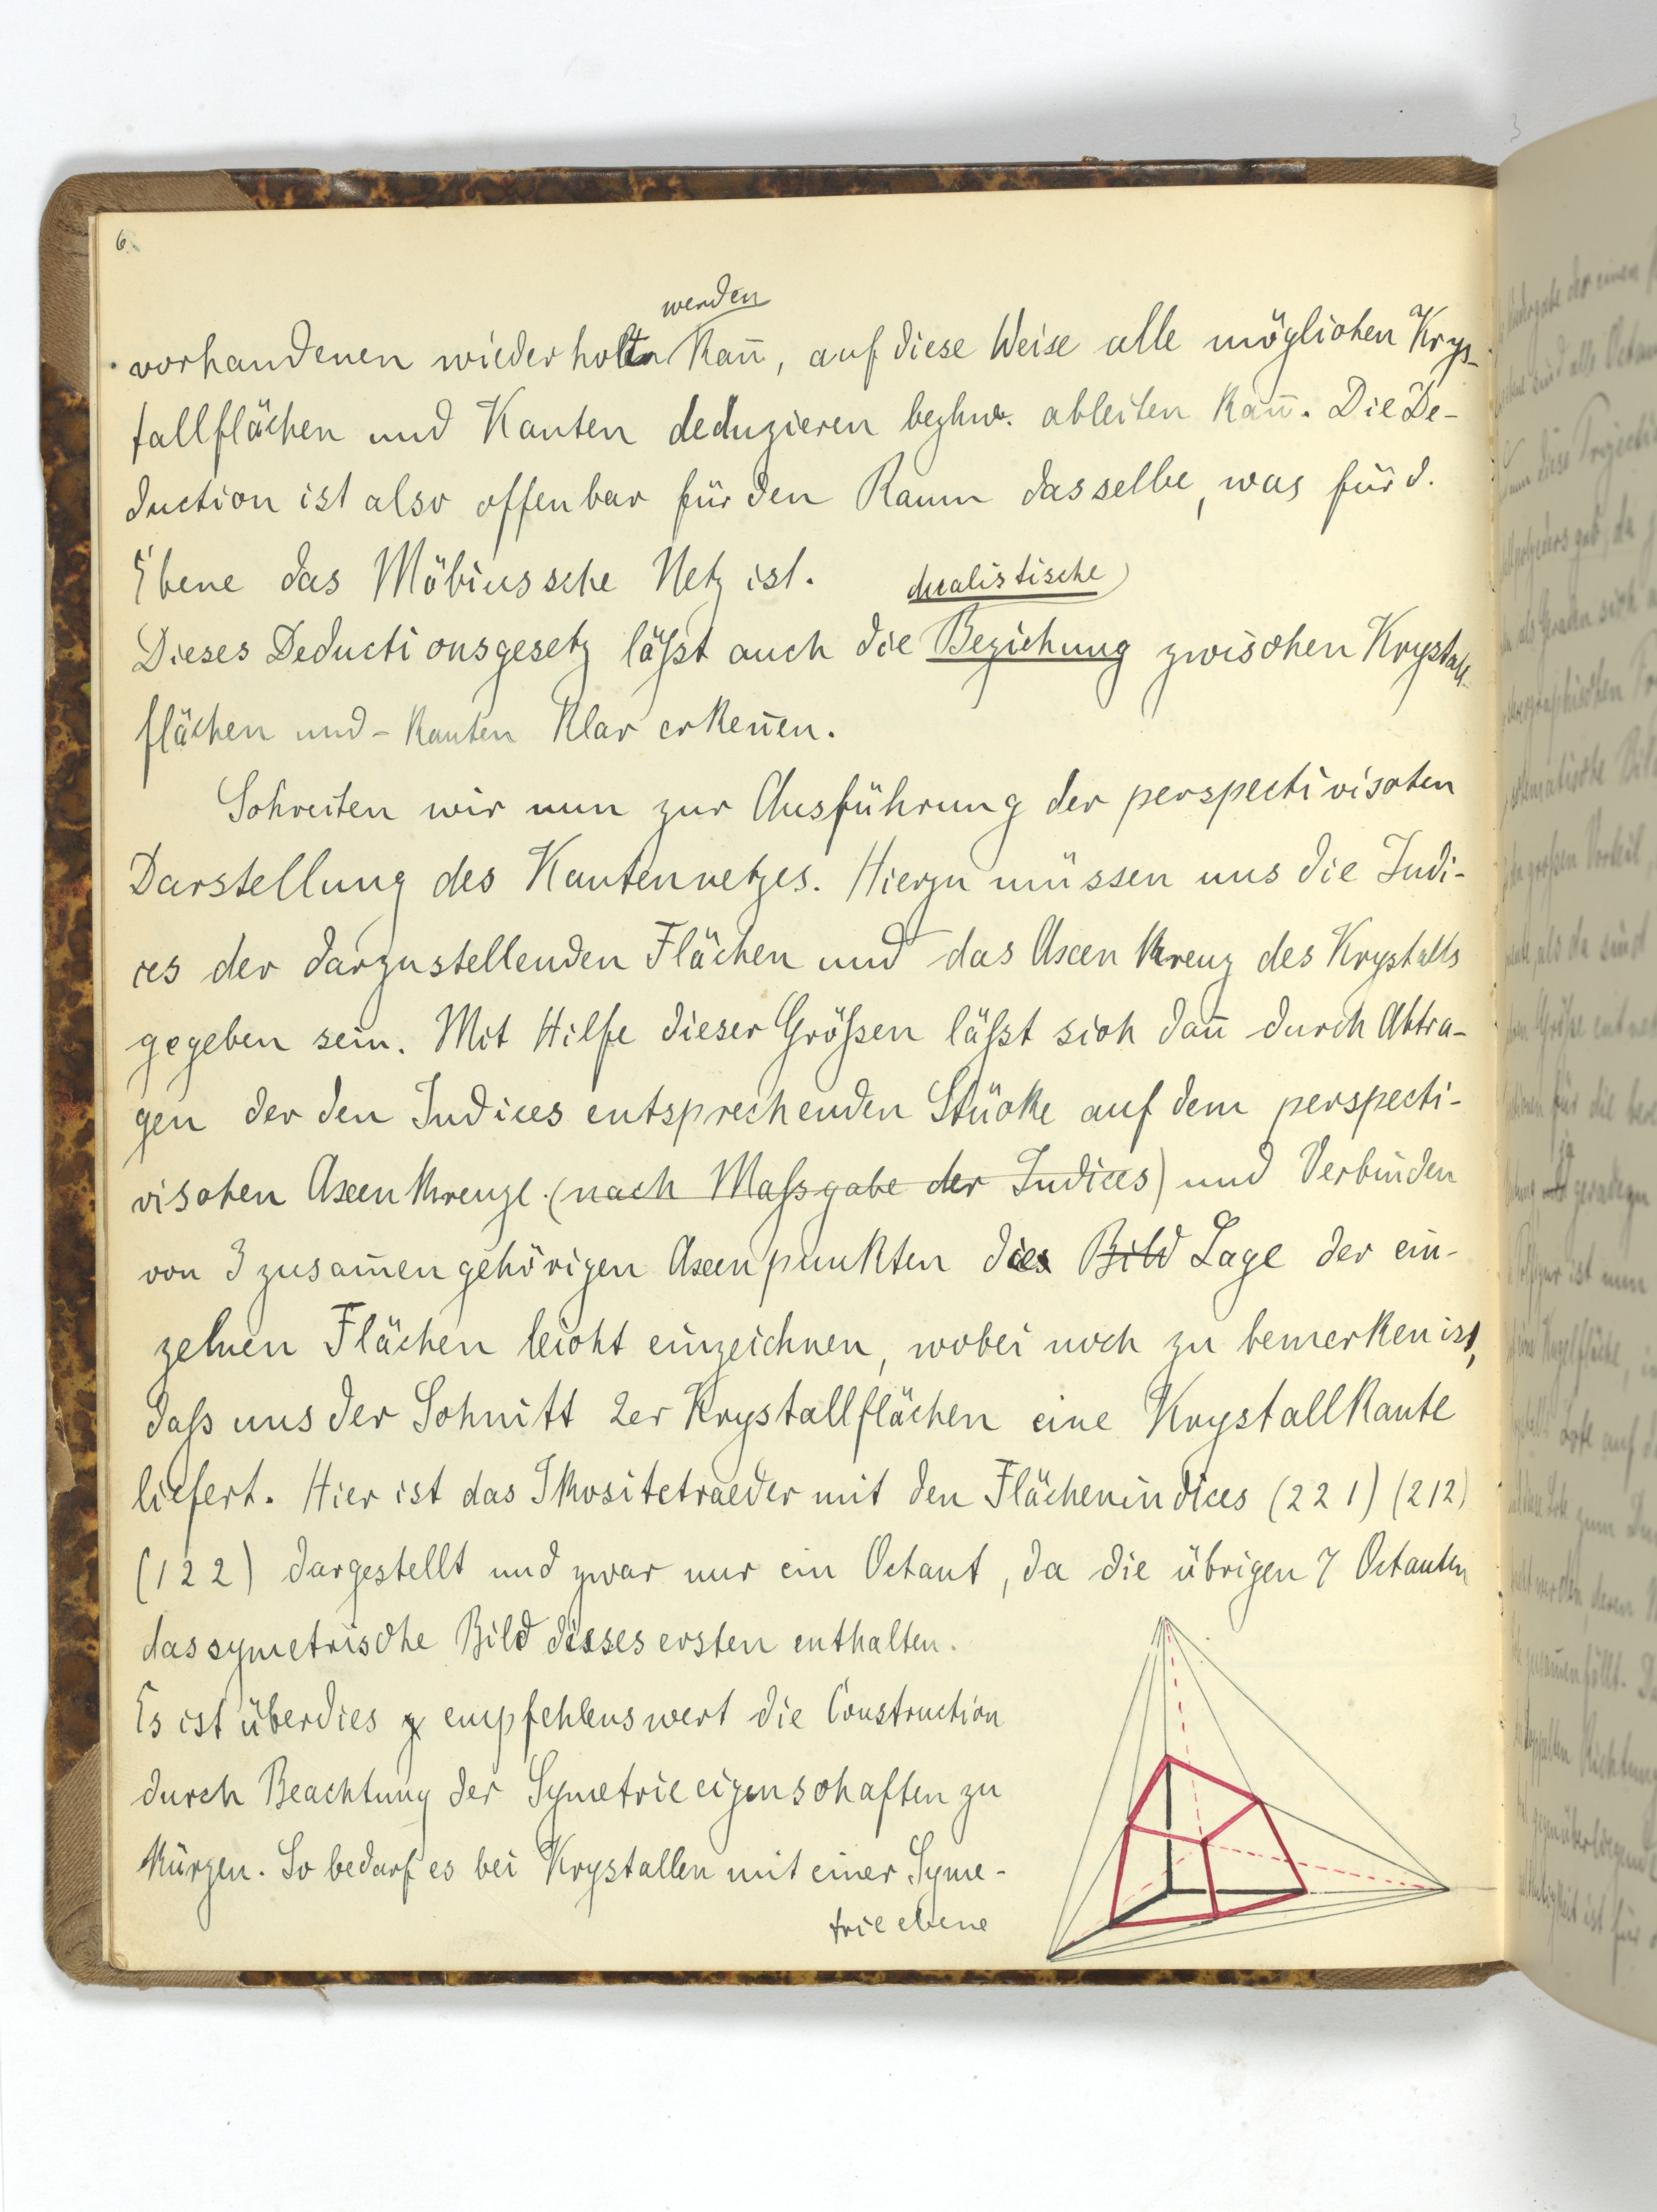 6.
werden
vorhandenen wiederholt kan̄, auf diese Weise alle möglichen Krys-
tallflächen und Kanten deduzieren bezhw. ableiten kan̄. Die De-
duction ist also offenbar für den Raum dasselbe, was für d.
Ebene das Möbiussche Netz ist.
dualistische
Dieses Deductionsgesetz läßt auch die Beziehung zwischen Krystall-
flächen und -kanten klar erken̄en.
Schreiten wir nun zur Ausführung der perspectivischen
Darstellung des Kantennetzes. Hierzu müssen uns die Indi-
ces der darzustellenden Flächen und das Axenkreuz des Krystalls
gegeben sein. Mit Hilfe dieser Größen läßt sich dan̄ durch Abtra-
gen der den Indices entsprechenden Stücke auf dem perspecti-
vischen Axenkreuze (nach Massgabe der Indices) und Verbinden
von 3 zusam̄engehörigen Axenpunkten die Bild Lage der ein-
zelnen Flächen leicht einzeichnen, wobei noch zu bemerken ist,
daß uns der Schnitt 2er Krystallflächen eine Krystallkante
liefert. Hier ist das Ikositetraeder mit den Flächenindices (221) (212)
(122) dargestellt und zwar nur ein Octant, da die übrigen 7 Octanten
das symetrische Bild dieses ersten enthalten.
Es ist überdies empfehlenswert die Construction
durch Beachtung der Symetrieeigenschaften zu
kürzen. So bedarf es bei Krystallen mit einer Syme-
trieebene